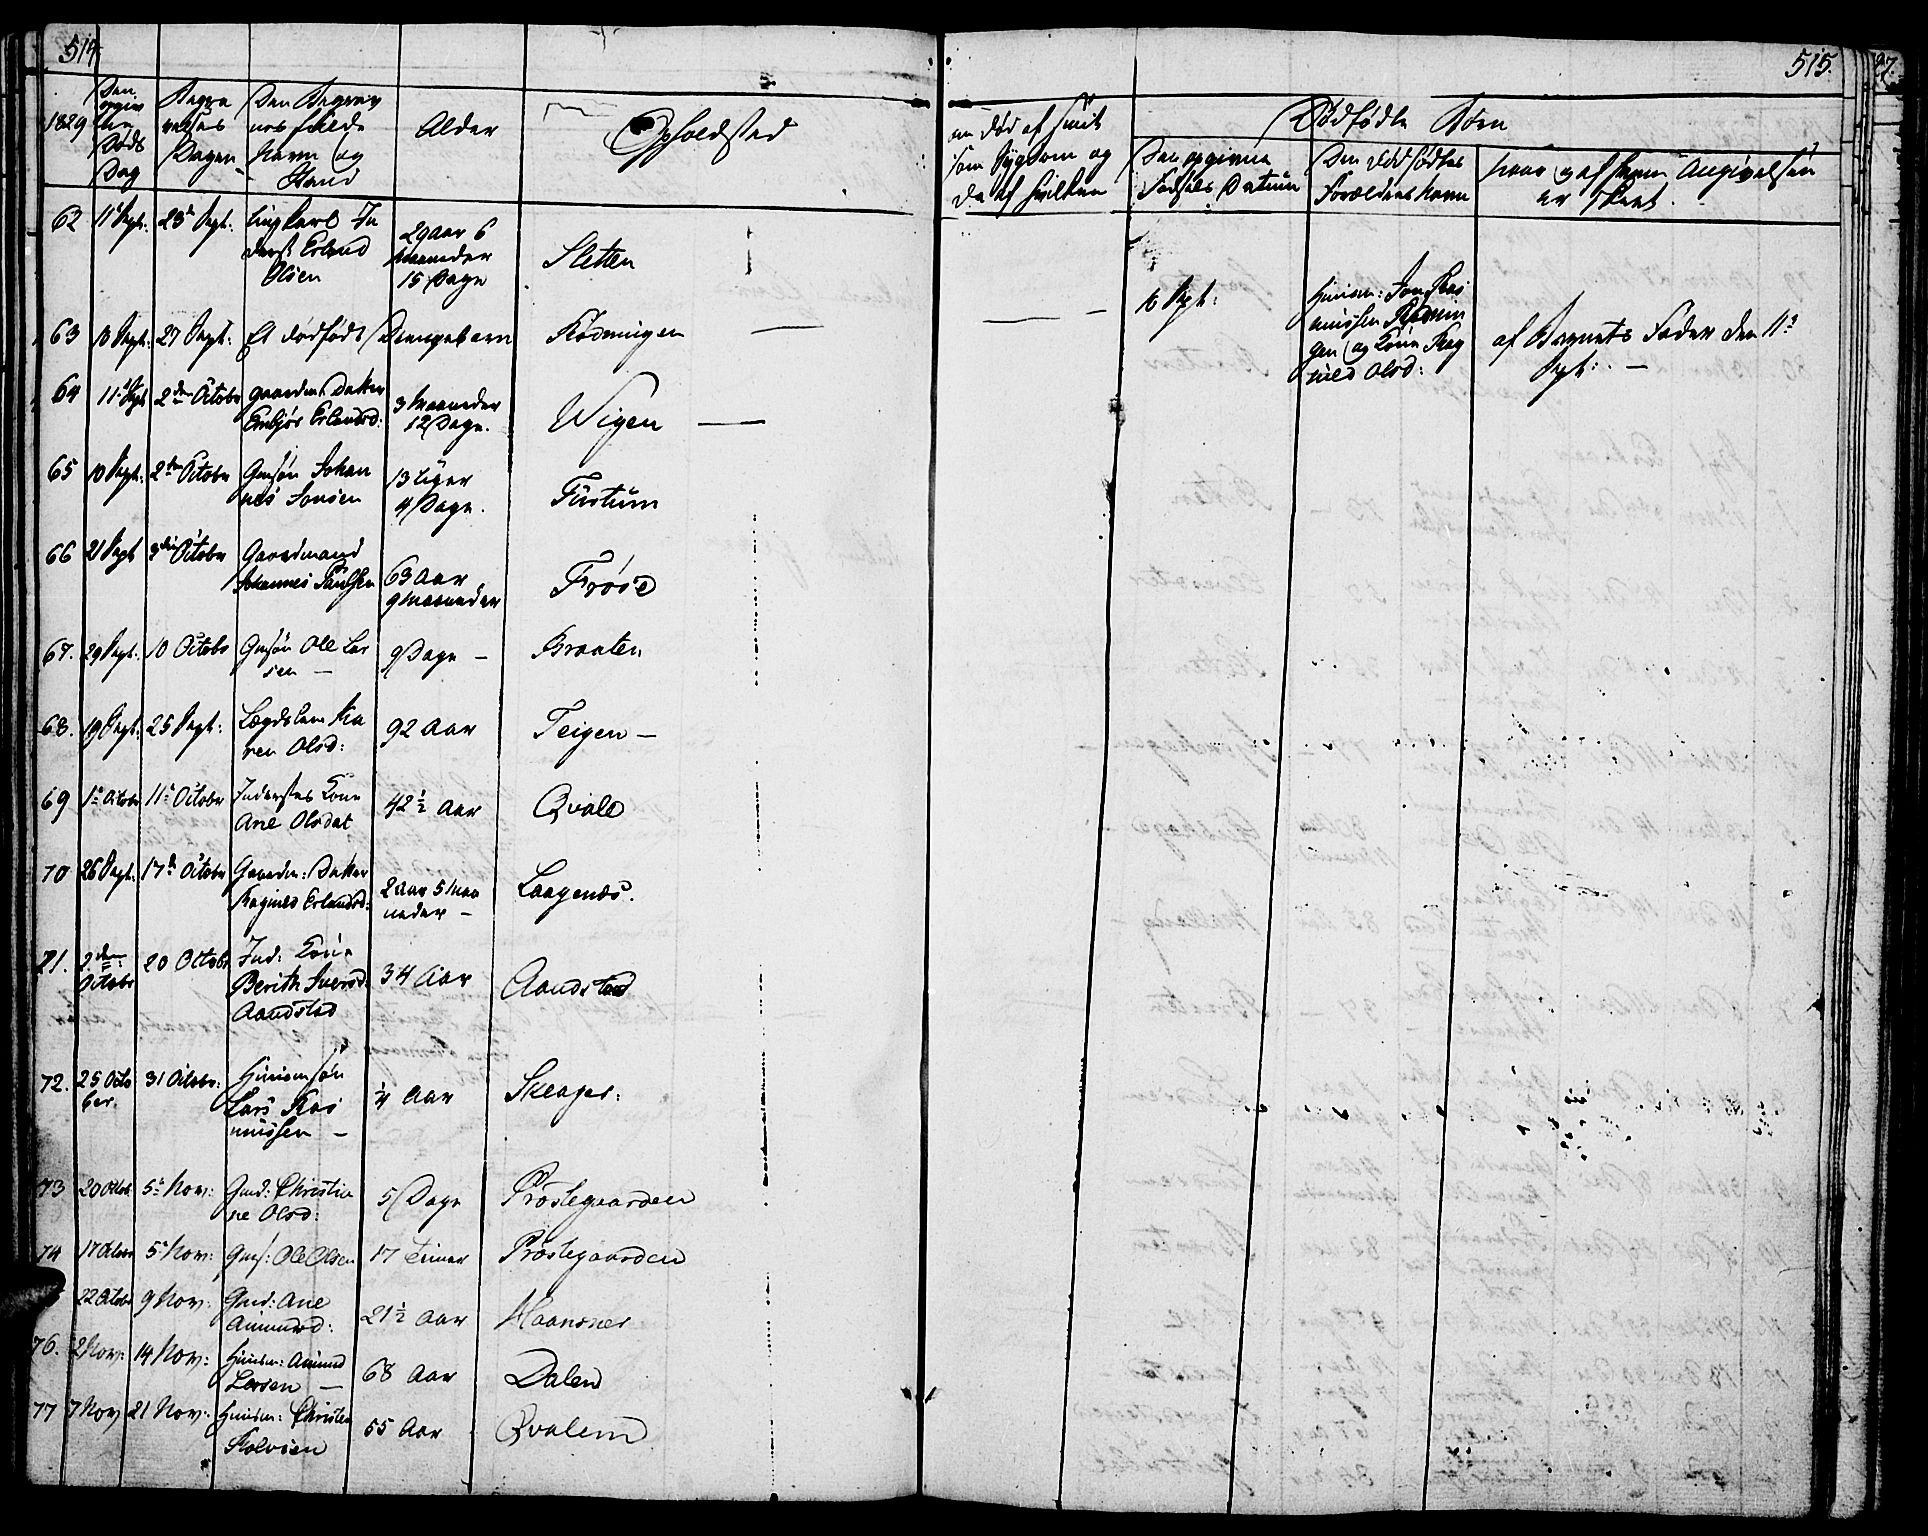 514
515.
1829
Den
opgiv
ne
Døds
Dag
Begra
velses
Dagen
Den Begrav
nes fulde
Navn og
Stand
Alder
Opholdsted
om død af smit
som Sygdom og
da af hvilken
Dødfødte Børn
Den opgivne
Fødsels Datum
Den dødfødtes
Forældres Navn
naar og af hvem Angivelsen
er skeet.
62 11 Sept: 23d Sept: Ungkarl In
derst Erland
Olsen
29 Aar 6
Maaneder
15 Dage
Sletten
63 10 Sept: 27 Sept: Et dødfødt Drengebarn Rødningen
10 Sept:
Huusm: Jon Ras
mussen Rødnin
gen og Kone Rag
nild Olsd:
af Barnets Fader den 11d
Sept: —
64 11 Sept 2den Octobr Gaardm: Datter
Embjør Erlandsd:
3 Maaneder
12 Dage.
Wigen —
65 10 Sept: 2den Octobr Gmsøn Johan
nes Jonsen
13 Uger
4 Dage.
Furtum
66 21 Sept 3die Octobr Gaardmand
Johannes Paulsen
63 Aar
9 Maaneder
Frøse
67. 29 Sept: 10 Octobr Gmsøn Ole Lar
sen —
9 Dage —
Braaten
68. 19 Sept: 25 Sept: Lægdslem Ka
ren Olsd:
92 Aar
Teigen —
69 1ste Octobr 11te Octobr Inderstes Kone
Ane Olsdat
42 ½ Aar
Qvale
70 26 Sept: 17d Octobr Gaardm: Datter
Ragnild Erlandsd:
2 Aar 5 Maa
neder —
Laagenæs.
71. 2den
Octobr
20 Octobr Ind: Kone
Berith Iversd:
Aandstad
34 Aar
Aandstad
72. 25 Octo
ber.
31 Octobr: Huusmsøn
Lars Ras
mussen —
¼ Aar
Skeager:
73 20 Octob 5te Nov: Gmd: Christia
ne Olsd:
5 Dage
Præstegaarden
74 17 Octobr 5te Nov: Gms: Ole Olsen 17 Timer Præstegaarden
22 Octobr 9 Nov: Gmd: Ane
Amundsd:
21 ½ Aar
Haansnes
76. 2 Nov: 14 Nov: Huusm: Amund
Larsen —
68 Aar
Dalen
77 7 Nov 21 Nov: Huusm: Christen
Kolvsen
55 Aar
Qvalem